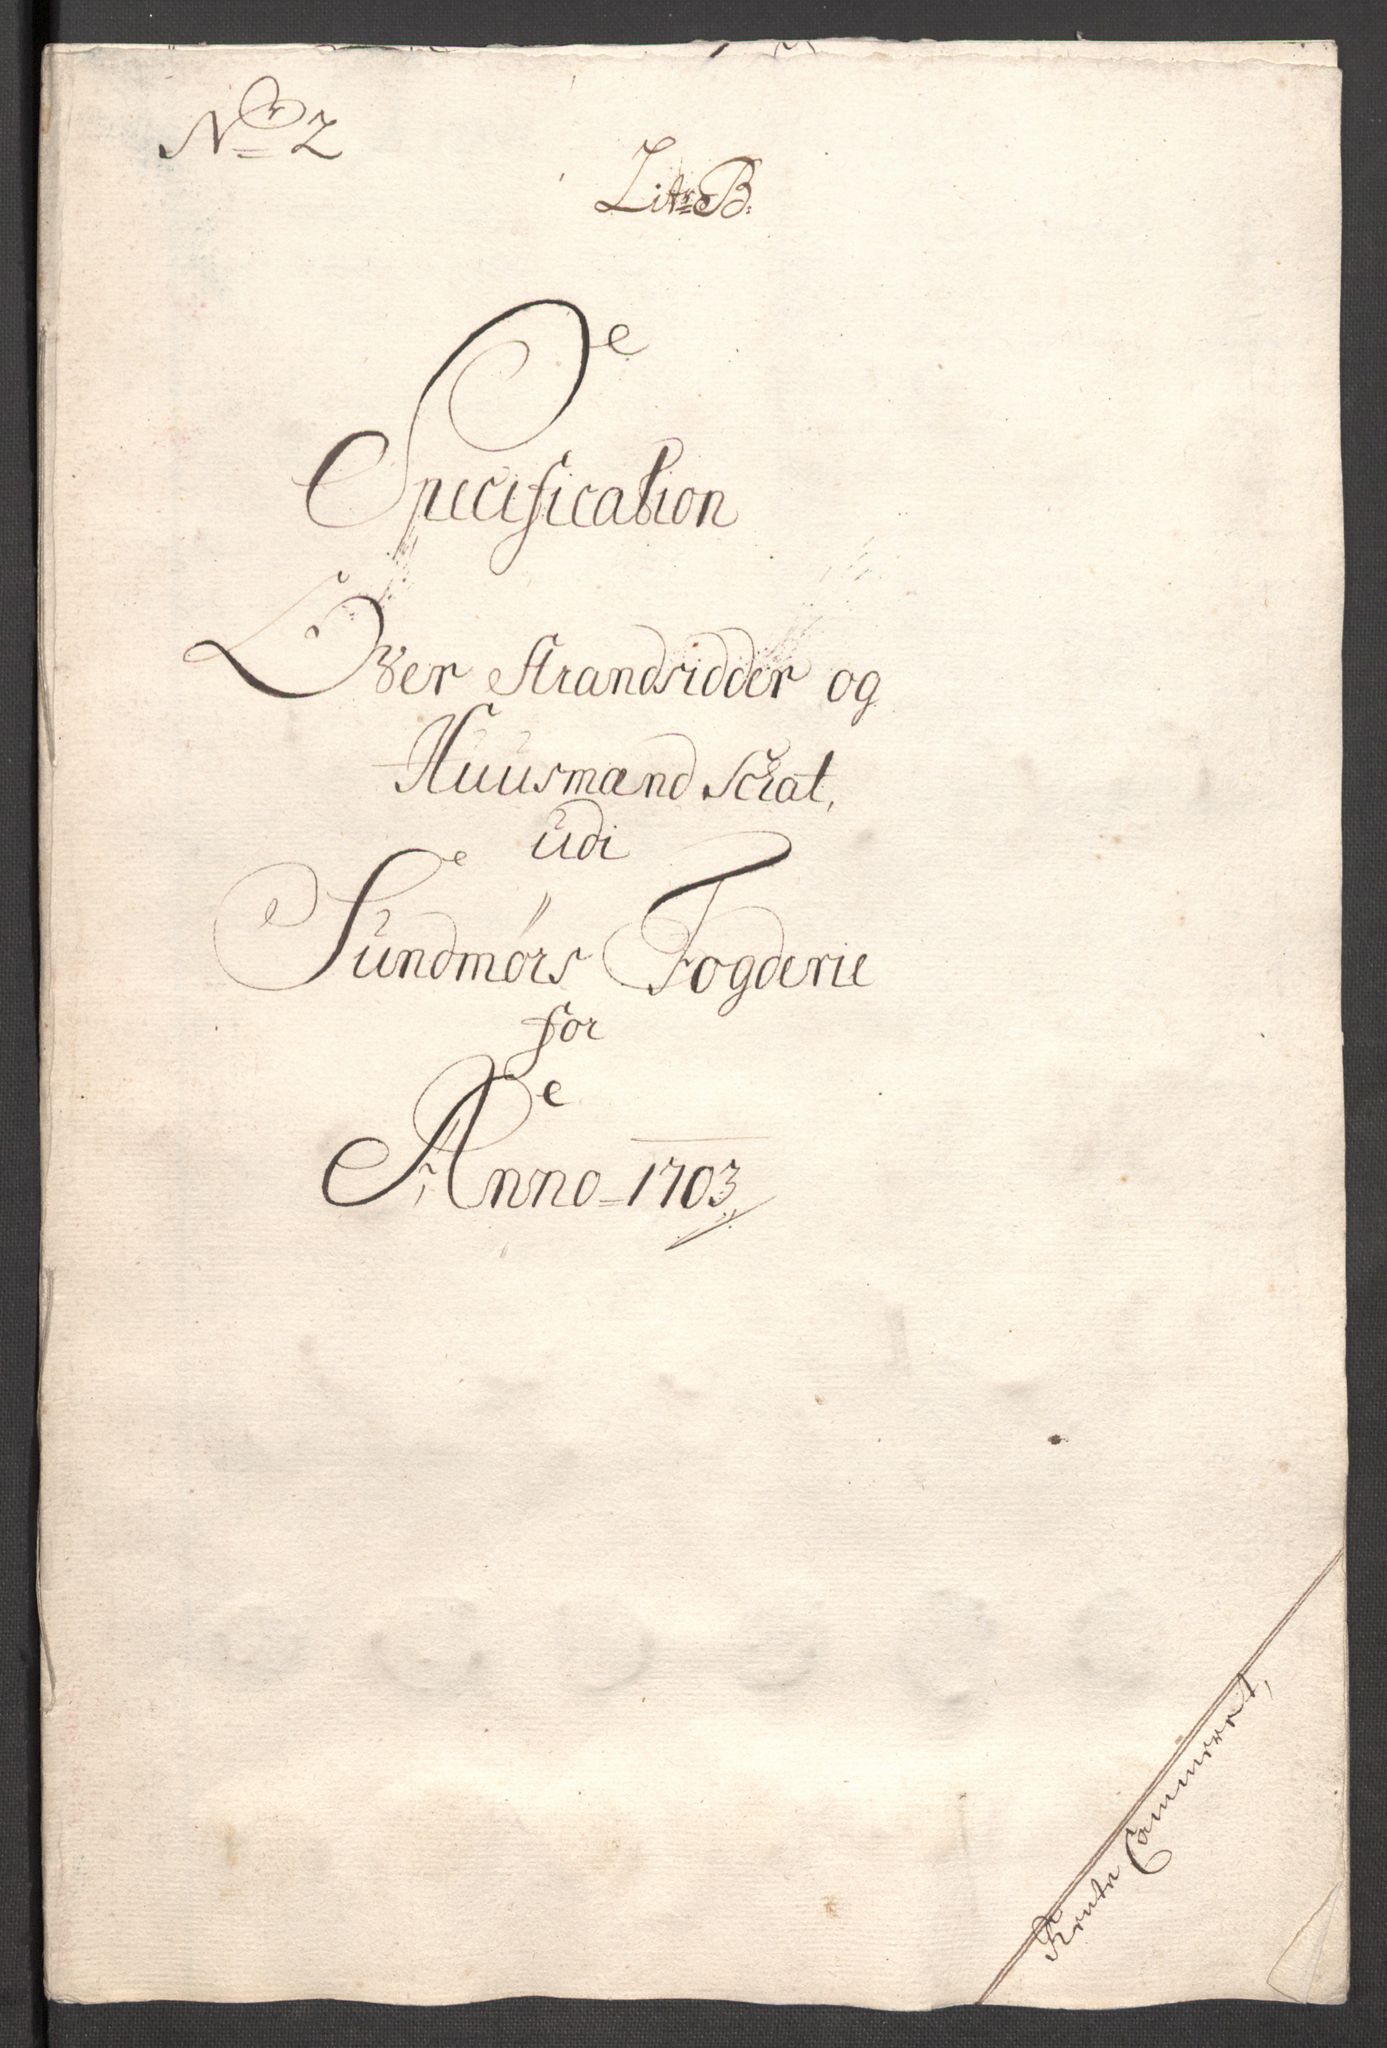 No 2
Litr B.
Specification
Over Strandsidder og
Huusmænd Schat,
udi
Sundmørs Fogderie
for
Anno 1703
Rente Cammeret,